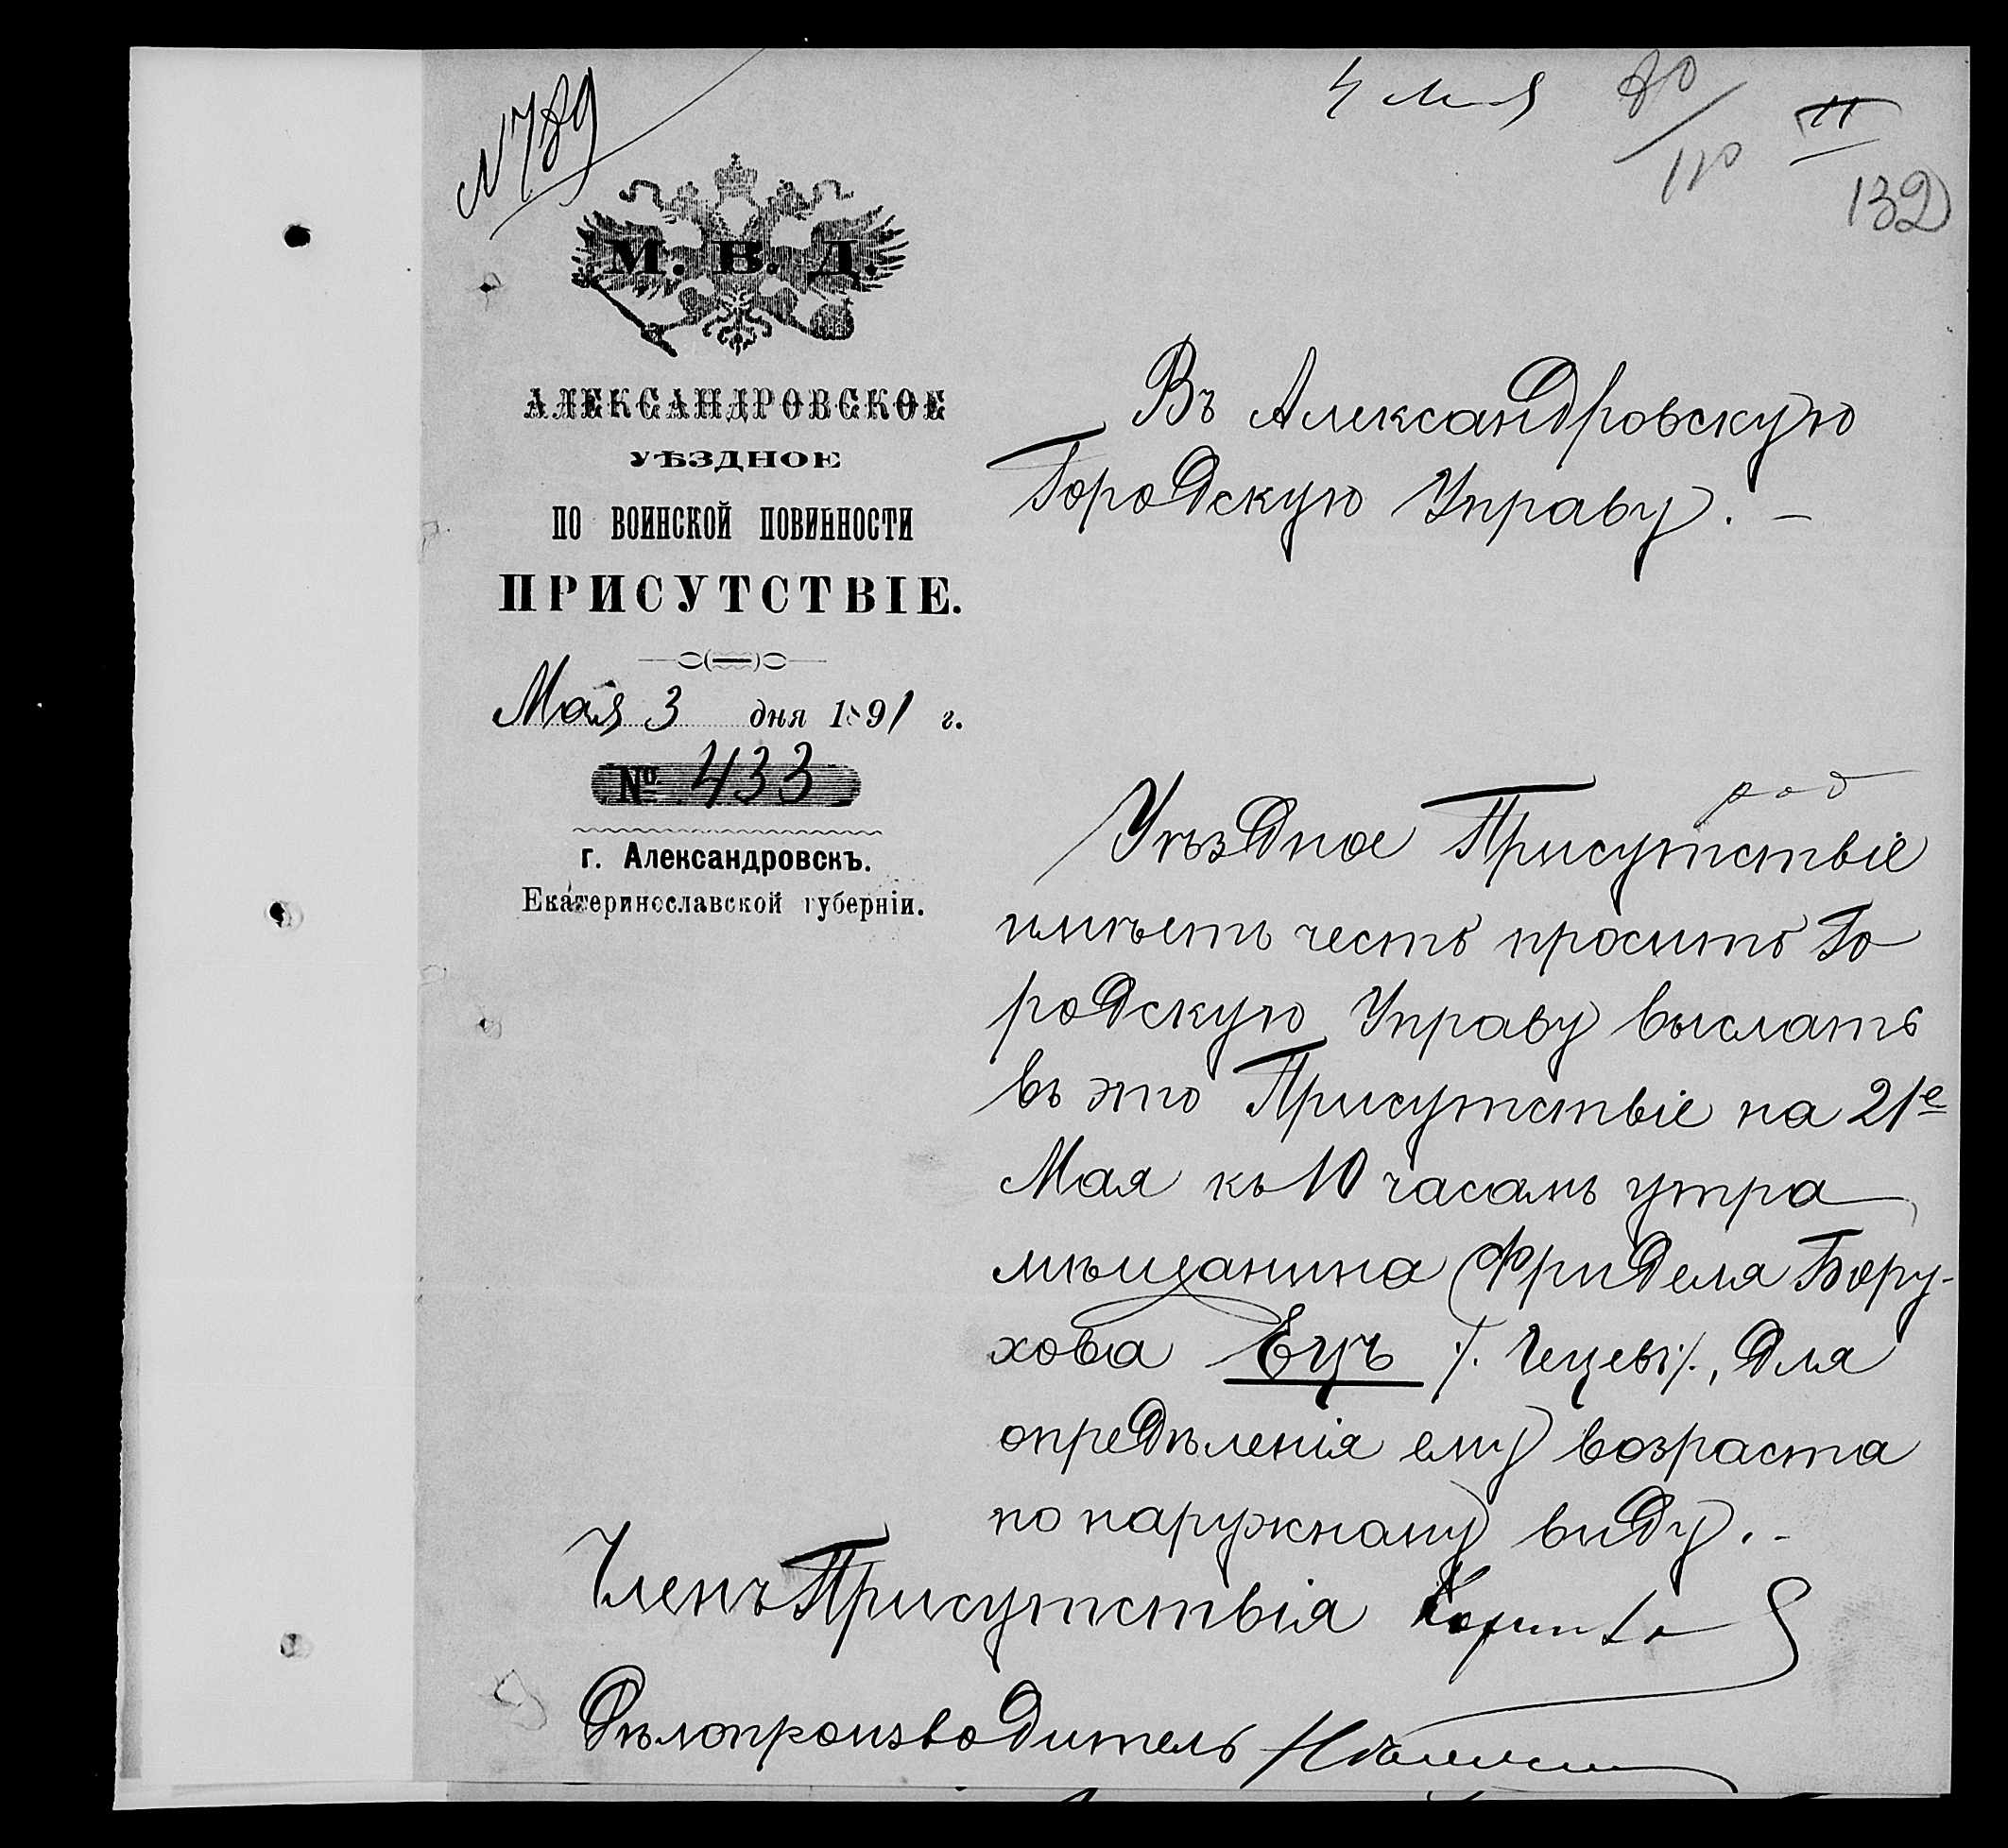 № 789
4 мая
80
110
11
132
М. В. Д.
АЛЕКСАНДРОВСКОЕ
УѢЗДНОЕ
ПО ВОИНСКОЙ ПОВИННОСТИ
ПРИСУТСТВІЕ.
Мая 3 дня 1891 г.
№ 433
г. Александровскъ.
Екатеринославской губерніи.
Въ Александровскую
Городскую Управу. –
Уѣздное Присутствіе
имѣетъ честь просить Го
родскую Управу выслать
въ это Присутствіе на 21е
Мая къ 10 часамъ утра
мѣщанина Фриделя Бору-
хова Ецъ /. Гецевъ/., для
опредѣленія ему возраста
по наружному виду. -
Членъ Присутствія
Дѣлопроизводитель